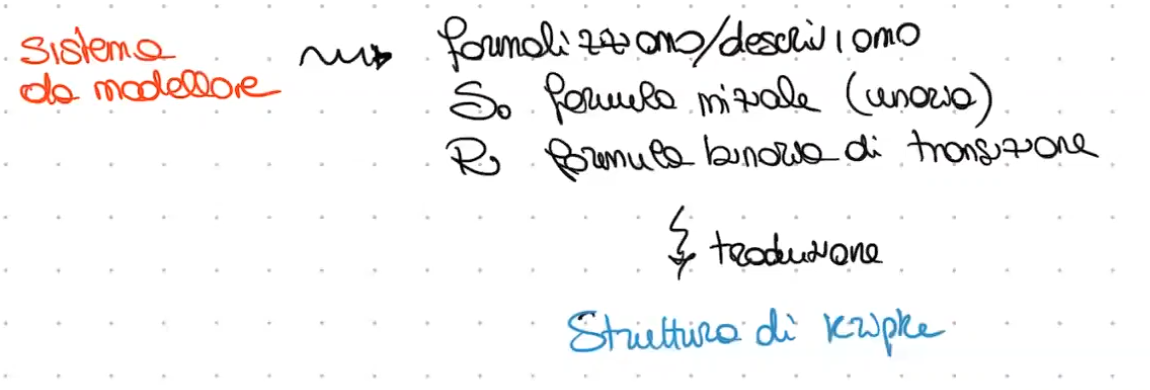 Sistema
da modellare
formalizziamo/descriviamo
S₀ formula iniziale (unaria)
R formula binaria di transizione
traduzione
Struttura di Kripke